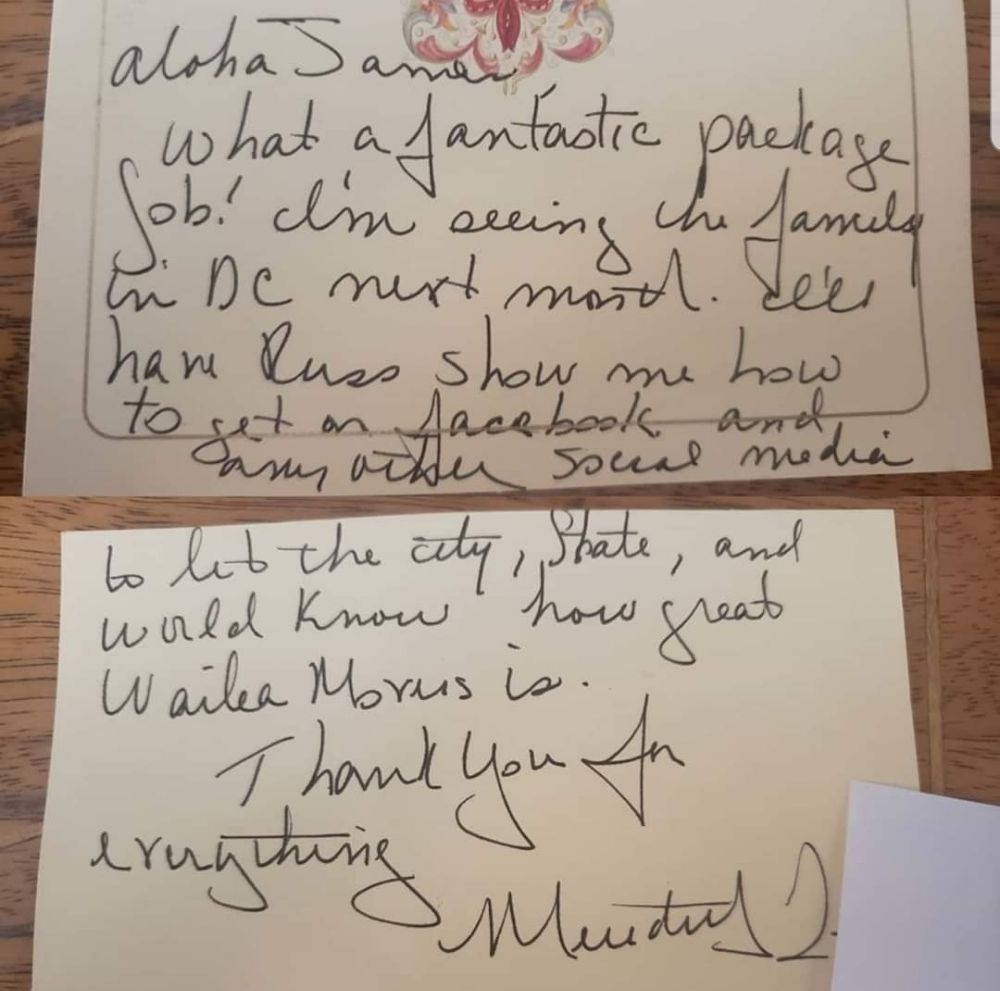 aloha James
What a fantastic package
Job! I'm seeing the family
in DC next month. I'll
have Russ show me how
to get on facebook and
any other social media
to let the city, State, and
world know how great
Wailea Movers is.
Thank you for
everything